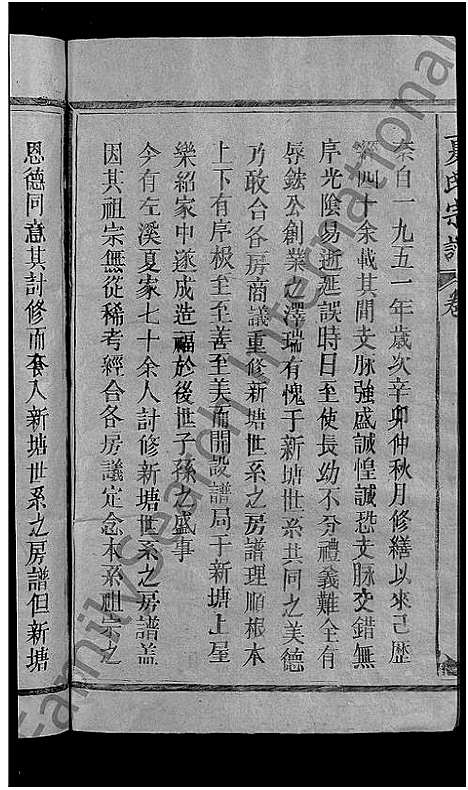 夏氏宗譜 卷
奈自一九五一年歲次辛卯仲秋月修繕以來己歷
經四十余載其間支脉強盛誠惶誠恐支脉交錯無
序光陰易逝延誤時日至使長幼不分禮義難全有
辱鉉公創業之澤瑞有愧于新塘世系共同之美德
乃敢台各房商議重修新塘世系之房譜理順根本
上下有序极至至善至美而開設譜局于新塘上屋
樂紹家中遂成造福於後世子孫之盛事
今有左溪夏家七十余人討修新塘世系之房譜盖
因其祖宗無從稀考經台各房議定念本系祖宗之
恩德同意其討修而套入新塘世系之房譜但新塘
FamilySearch International